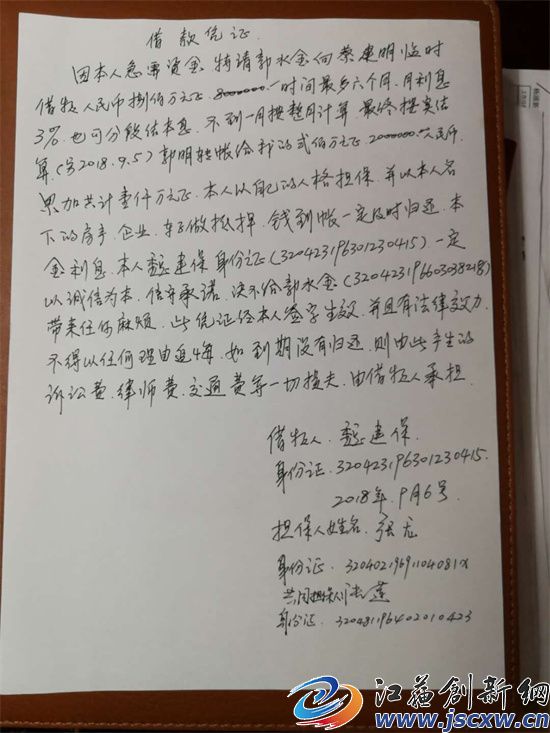 借款凭证
因本人急需资金,特请郭水金向蔡建明临时
借款人民币捌佰万元正.8000000.一时间最多六个月.月利息
3%.也可分段结本息.不到一月按整月计算.最终按实结
算.(另2018.9.5)郭明转帐给我的贰佰万元正.2000000.人民币
累加共计壹仟万元正.本人以自己的人格担保.并以本人名
下的房产.企业.车子做抵押.钱到帐一定及时归还.本
金利息.本人 建保身份证(320423196301230415)一定
以诚信为本.信守承诺.决不给郭水金(320423196603038218)
带来任何麻烦.此凭证经本人签字生效.并且有法律效力.
不得以任何理由追悔.如到期没有归还.则由此产生的
诉讼费.律师费.交通费等一切损失.由借款人承担.
借款人. 建保.
身份证.320423196301230415.
2018年.9月6号
担保人姓名.张龙
身份证.32040219691104081X
共同担保人 莲
身份证.320481196402010423
江苏创新网
www.jscxw.com.cn